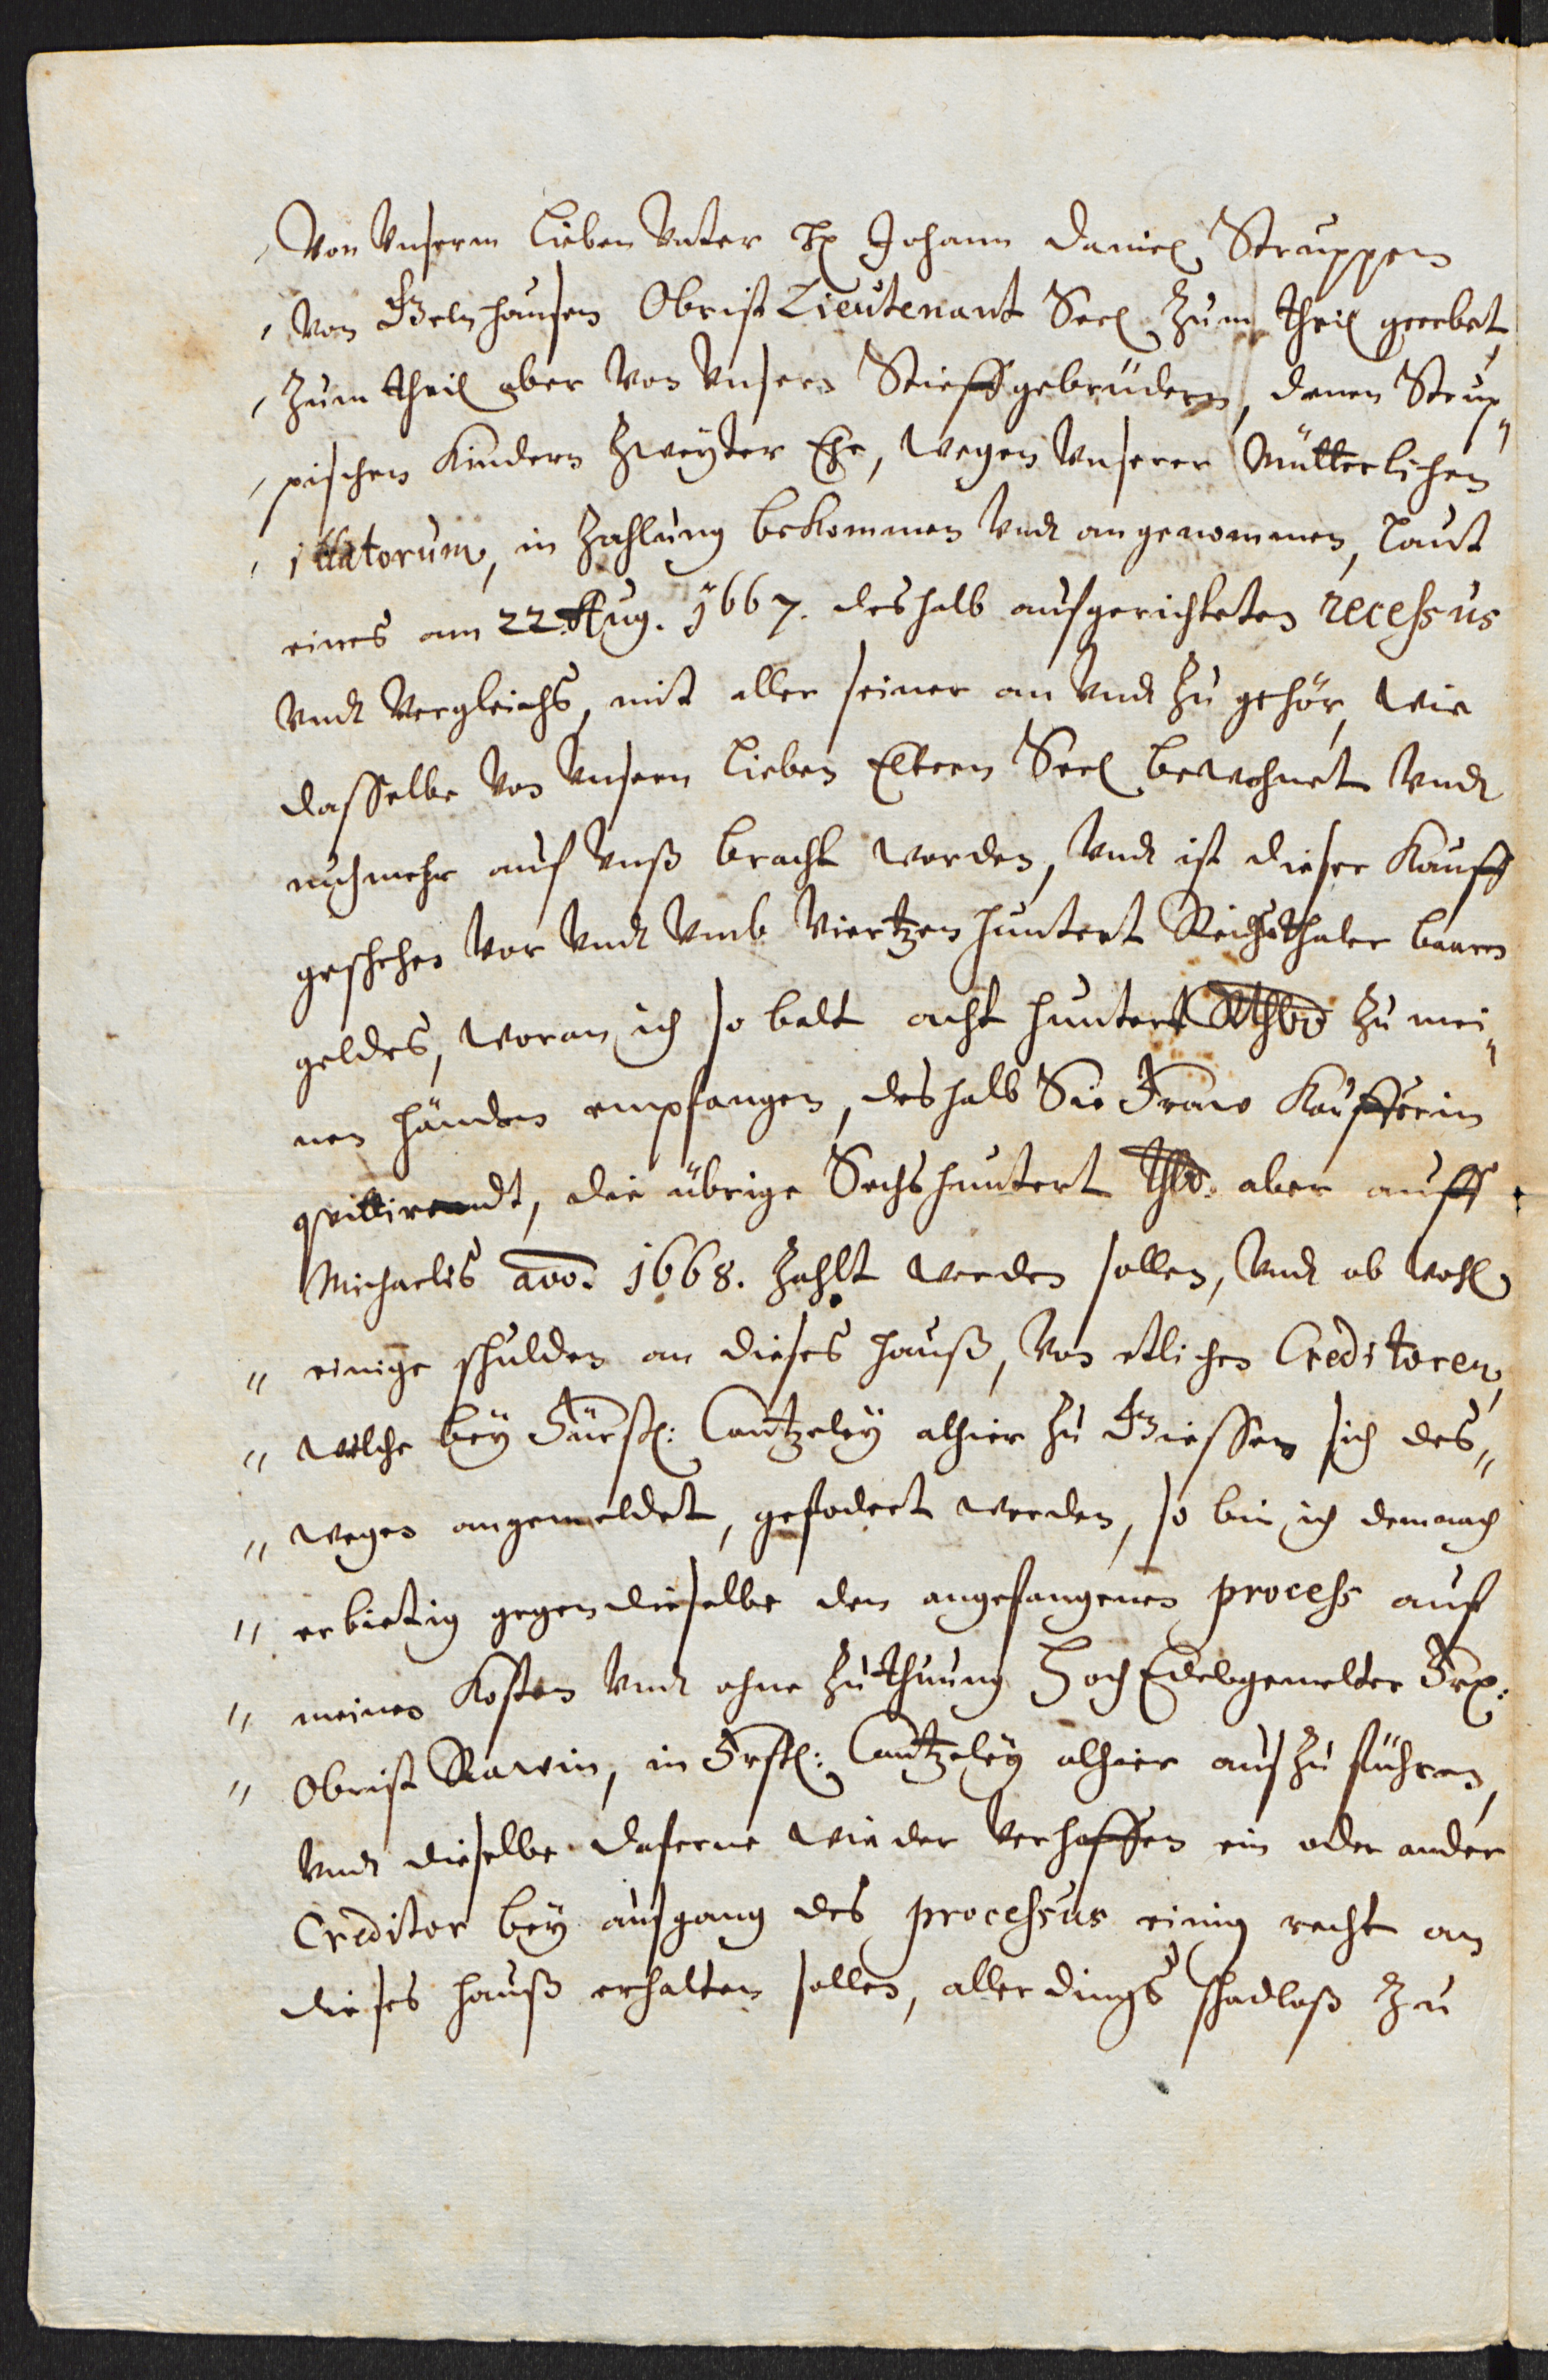 Von Vnserm lieben Vater H. Johann Daniel Struppen
Von Gelnhausen Obrist Lieutenant Seel. zum theil geerbet,
zum theil aber von Vnsern Stieffgebrüdern, denen Strup„
pischen Kindern zweyter Ehe, wegen Vnserer Mütterlichen
illatorum, in Zahlung bekommen Vndt angenommen, laut
eines am 22. Aug. 1667. deshalb aufgerichteten recessus
Vndt Vergleichs, mit aller seiner an Vndt zu gehör, wie
dasselbe von Vnsern lieben Eltern Seel. bewohnet Vndt
nuhmehr auf Vnß bracht worden, Vndt ist dieser Kauff
geschehen vor Vndt Vmb Viertzen huntert Reichsthaler baaren
geldes, woran ich so balt acht huntert Rthlr zu mei„
nen händen empfangen, deshalb Sie Fraw Kaufferin
qvittirendt, die übrige Sechshuntert thlr. aber auff
Michaelis ao. 1668. zahlt werden sollen, Vndt ob wohl
„ einige schulden an dieses Hauß, von etlichen Creditoren,
„ welche bey Fürstl: Cantzeley alhier zu Giessen sich des„
„ wegen angemeldet, gefodert werden, so bin ich demnach
„ erbietig gegen dieselbe den angefangenen process auf
„ meinen Kosten Vndt ohne Zuthuung HochEdelgemelter Fr.
„ Obrist Rawin, in Frstl: Cantzeley alhier auszuführen,
Vndt dieselbe daferne wieder Verhoffen ein oder ander
Creditor bey ausgang des processus einig recht an
dieses Hauß erhalten sollen, allerdings schadloß zu